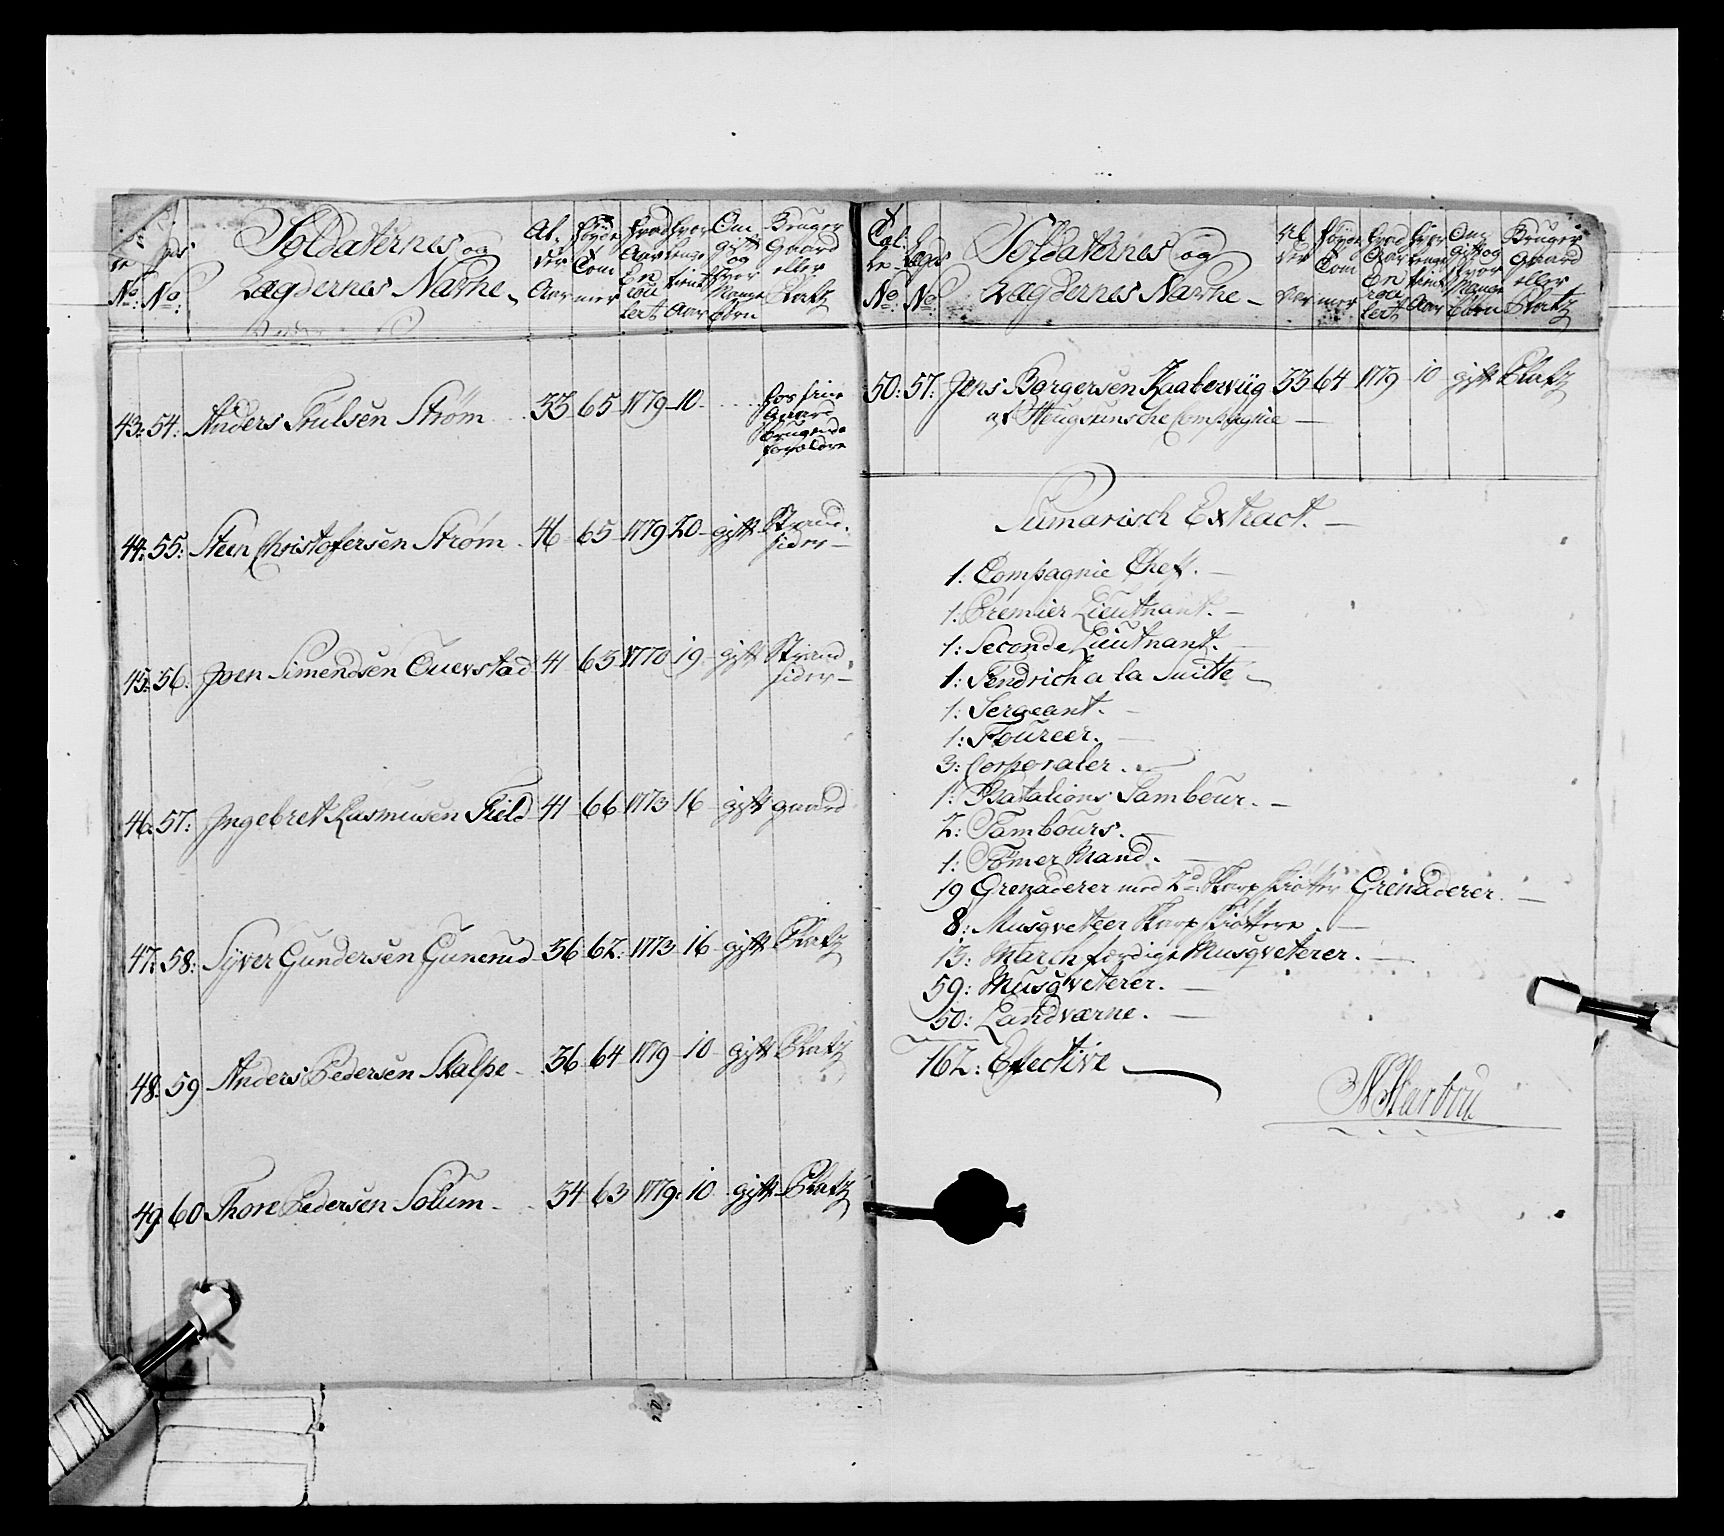 Soldaternes og
Lægdernes Navne
Al-
der
Aar
Høyde
Tom
mer
Hvad
Aar
En
rou
lert
Hvor
Lenge
tient
Aar
Om
gift
og
Hvor
Mange
Børn
Bruger
Gaard
eller
Platz
No: No:
43: 54: Anders Trulsen Strøm 33 65 1779 10
hos sine
Gaard
brugende
foreldre
44: 55: Steen Christofersen Strøm 46 65 1779 20 gift Strand-
sider
45: 56: Joen Simensen Ouerstad 41 63 1770 19 gift Strand-
sider
46: 57: Ingebret Rasmusen Field 41 66 1773 16 gift gaard
47: 58: Syver Gundersen Gunerud 36 62: 1773 16 gift Platz
48: 59 Anders Pedersen Skalpe 36 64 1779 10 gift Platz
49 60 Thore Pedersen Solum 34 63 1779: 10 gift Platz
No: No:
Soldaternes og
Lægdernes Navne
Høyde
Tom
mer
Om
gift og
Hvor
Mange
Børn
Bruger
Gaard
eller
Platz
50: 57: Jens Borgersen Kaaterviig 33 64 1779 10 gift Platz
Compagnie
Sumarisch Extract.
1: Compagnie Chef.
1: Premier Lieutnant.
1: Seconde Lieutnant.
1: Fendrich a la Suitte
1: Sergeant.
1: Foureer.
3: Corporaler.
1: Batalions Tambour.
2: Tambours.
1: Tømer Mand.
19 Grenaderer med 2de Skarpskiøtter Grenaderer.
8: Musqveteer Skarpskiøttere.
13: March færdige Musqveterer.
59: Musqveterer.
50: Landværne.
162: Efective